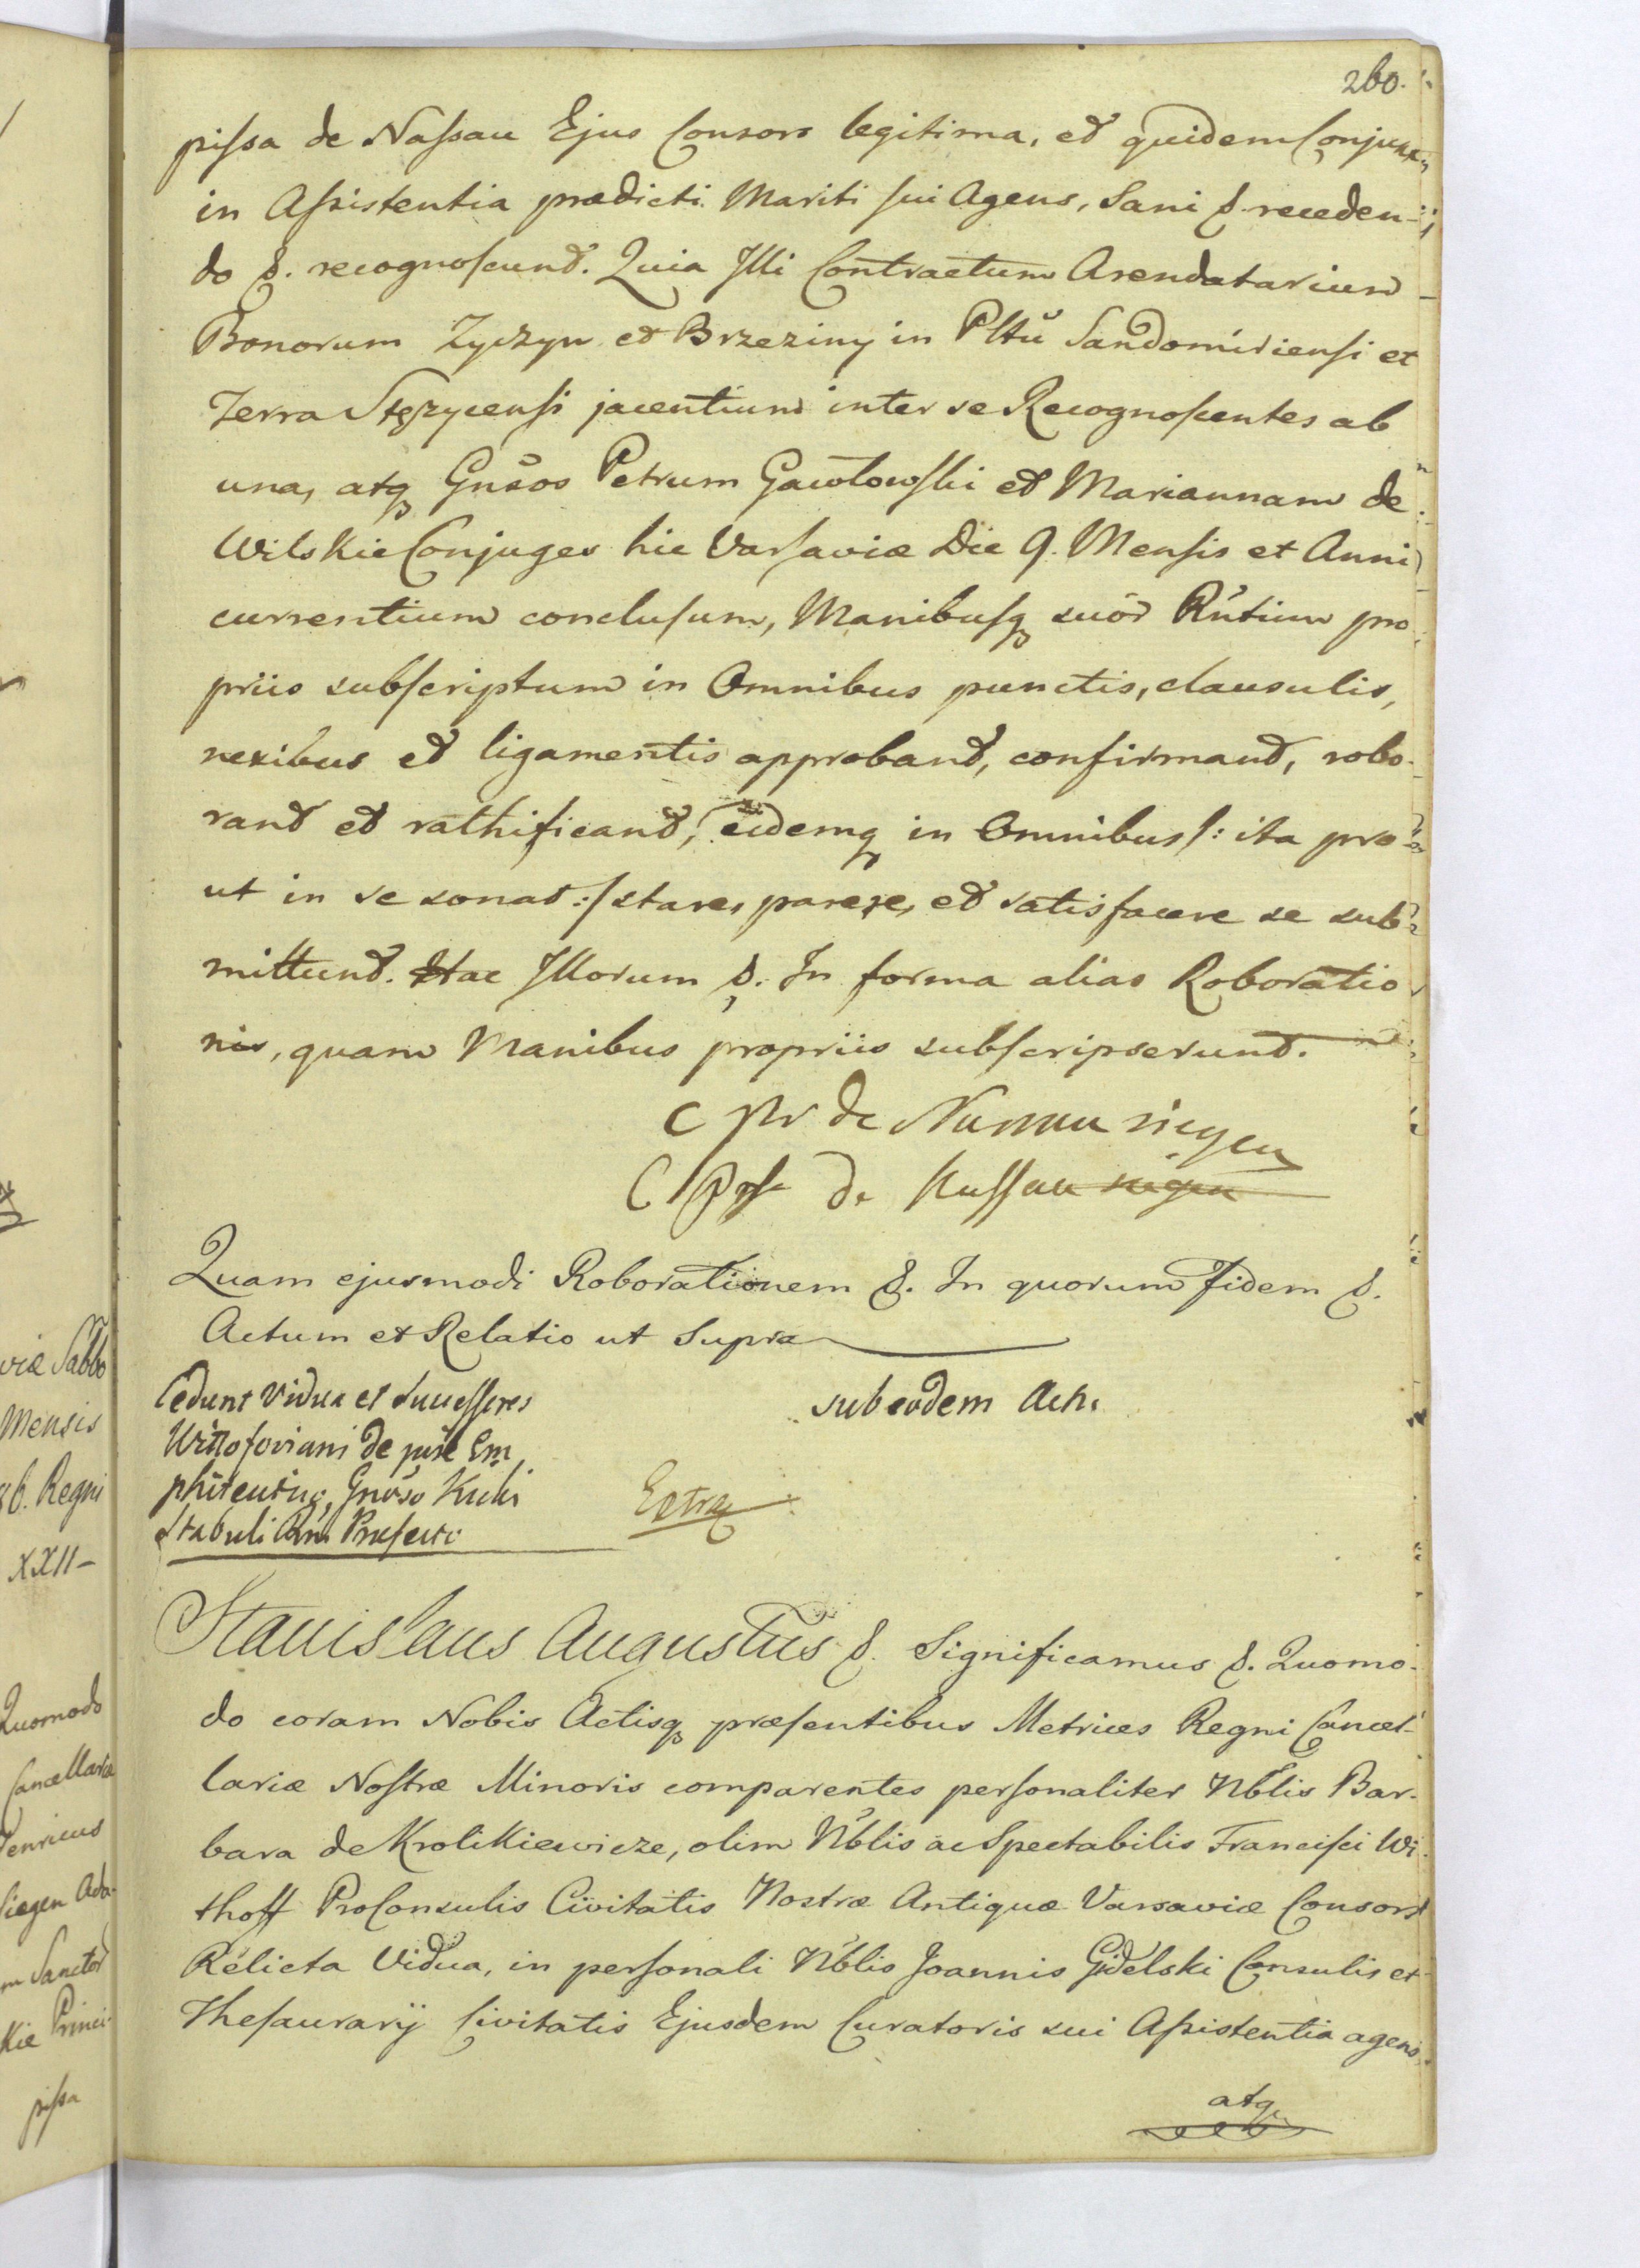 260.
pissa de Nassau Ejus Consors legitima, et quidem Conjunx
in Assistentia prædicti Mariti sui Agens, Sani &. receden-
do &. recognoscunt. Quia Illi Contractum Arendatarium
Bonorum Zyczyn et Brzeziny in Pltũ Sandomiriensi et
Terra Stężycensi jacentium inter se Recognoscentes ab
una, atq Gnŏsos Petrum Gawłowski et Mariannam de
Wilskie Conjuges hic Varsaviæ Die 9. Mensis et Anni
currentium conclusum, Manibusq suor Rntium pro
priis subscriptum in Omnibus punctis, clausulis,
nexibus et ligamentis approbant, confirmant, robo-
rant et rathificant, eidemq in Omnibus /: ita pro
ut in se sonat :/ stare, parere, et satisfacere se sub
mittunt. Hac Illorum &. In forma alias Roboratio
nis, quam Manibus propriis subscripserunt.
C Pr de Nassau siegen
C Pss de Nassau siegen
Quam ejusmodi Roborationem &. In quorum Fidem &.
Actum et Relatio ut Supra
Cedunt Vidua et Successores
Wittofoviani de jure Em
phiteutico, Gnoso Kicki
Stabuli Præfecto
sub eodem Actu
Extra
Stanislaus Augustus &. Significamus &. Quomo-
do coram Nobis Actisq præsentibus Metrices Regni Cancel-
lariæ Nostræ Minoris comparentes personaliter Nblis Bar-
bara de Krolikiewicze, olim Nblis ac Spectabilis Francisci Wi
thoff ProConsulis Civitatis Nostræ Antiquæ Varsaviæ Consors
Relicta Vidua, in personali Nblis Joannis Gidelski Consulis et
Thesaurarij Civitatis Ejusdem Curatoris sui Assistentia agens
atq
viæ Sabbo
Mensis
86. Regni
XXII-
Quomodo
Cancellariæ
Henricus
Siegen Ada-
m Sanctor
kie Princi-
pissa